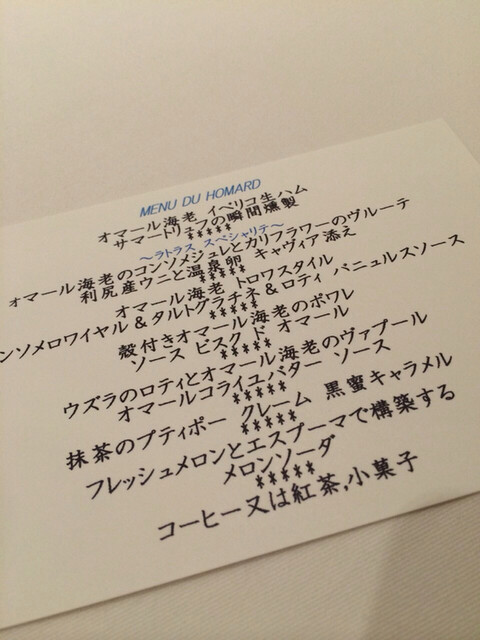 MENU DU HOMARD
オマール海老 イベリコ生ハム
サマートリュフの瞬間燻製
*****
～ラトラス スペシャリテ～
オマール海老のコンソメジュレとカリフラワーのヴルーテ
利尻産ウニと温泉卵 キャヴィア添え
*****
オマール海老 トロワスタイル
ンソメロワイヤル＆タルトグラチネ＆ロティ バニュルスソース
*****
殻付きオマール海老のポワレ
ソース ビスク ド オマール
*****
ウズラのロティとオマール海老のヴァプール
オマールコライユバター ソース
*****
抹茶のプティポー クレーム 黒蜜キャラメル
*****
フレッシュメロンとエスプーマで構築する
メロンソーダ
*****
コーヒー又は紅茶,小菓子